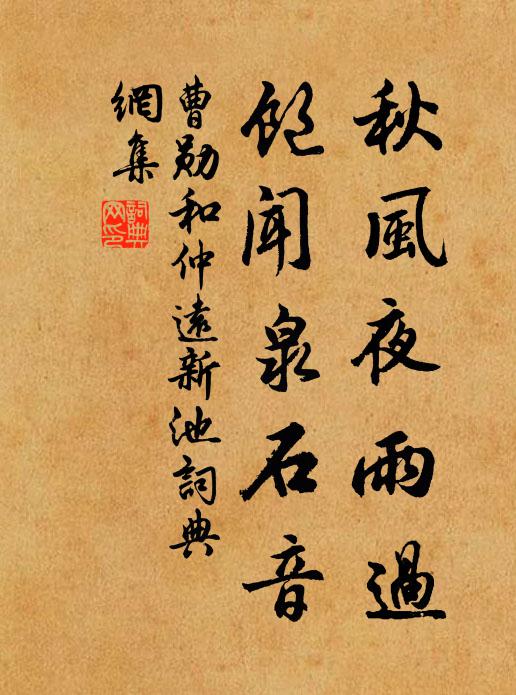 秋風夜雨過
飽聞泉石音
曹勛和仲遠新池詞典
網集
詞典
网印